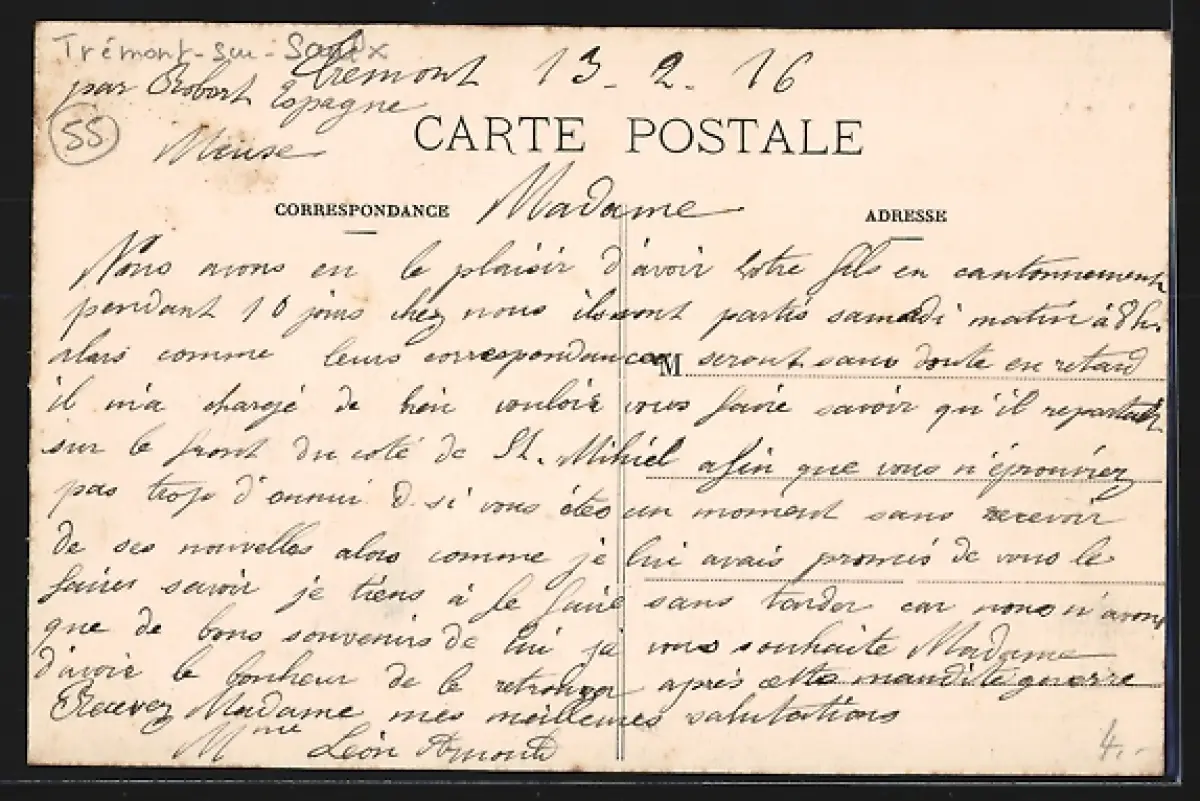 Trémont-sur-Saulx
Trémont 13-2.16
par Robert Espagne
55
Meuse
CARTE POSTALE
CORRESPONDANCE
Madame
ADRESSE
Nous avons eu le plaisir d'avoir votre fils en cantonnement
pendant 10 jours chez nous ils sont partis samedi matin à 8h.
alors comme leurs correspondances seront sans doute en retard
M
il m'a chargé de bien vouloir vous faire savoir qu'il repartait
sur le front du coté de St. Mihiel afin que vous n'éprouviez
pas trop d'ennui si vous étes un moment sans recevoir
de ses nouvelles alors comme je lui avais promis de vous le
faire savoir je tiens à le faire sans tarder car nous n'avons
que de bons souvenirs de lui je vous souhaite Madame
d'avoir le bonheur de le retrouver après cette maudite guerre
Recevez Madame mes meilleures salutations
Mme Léon
4.-